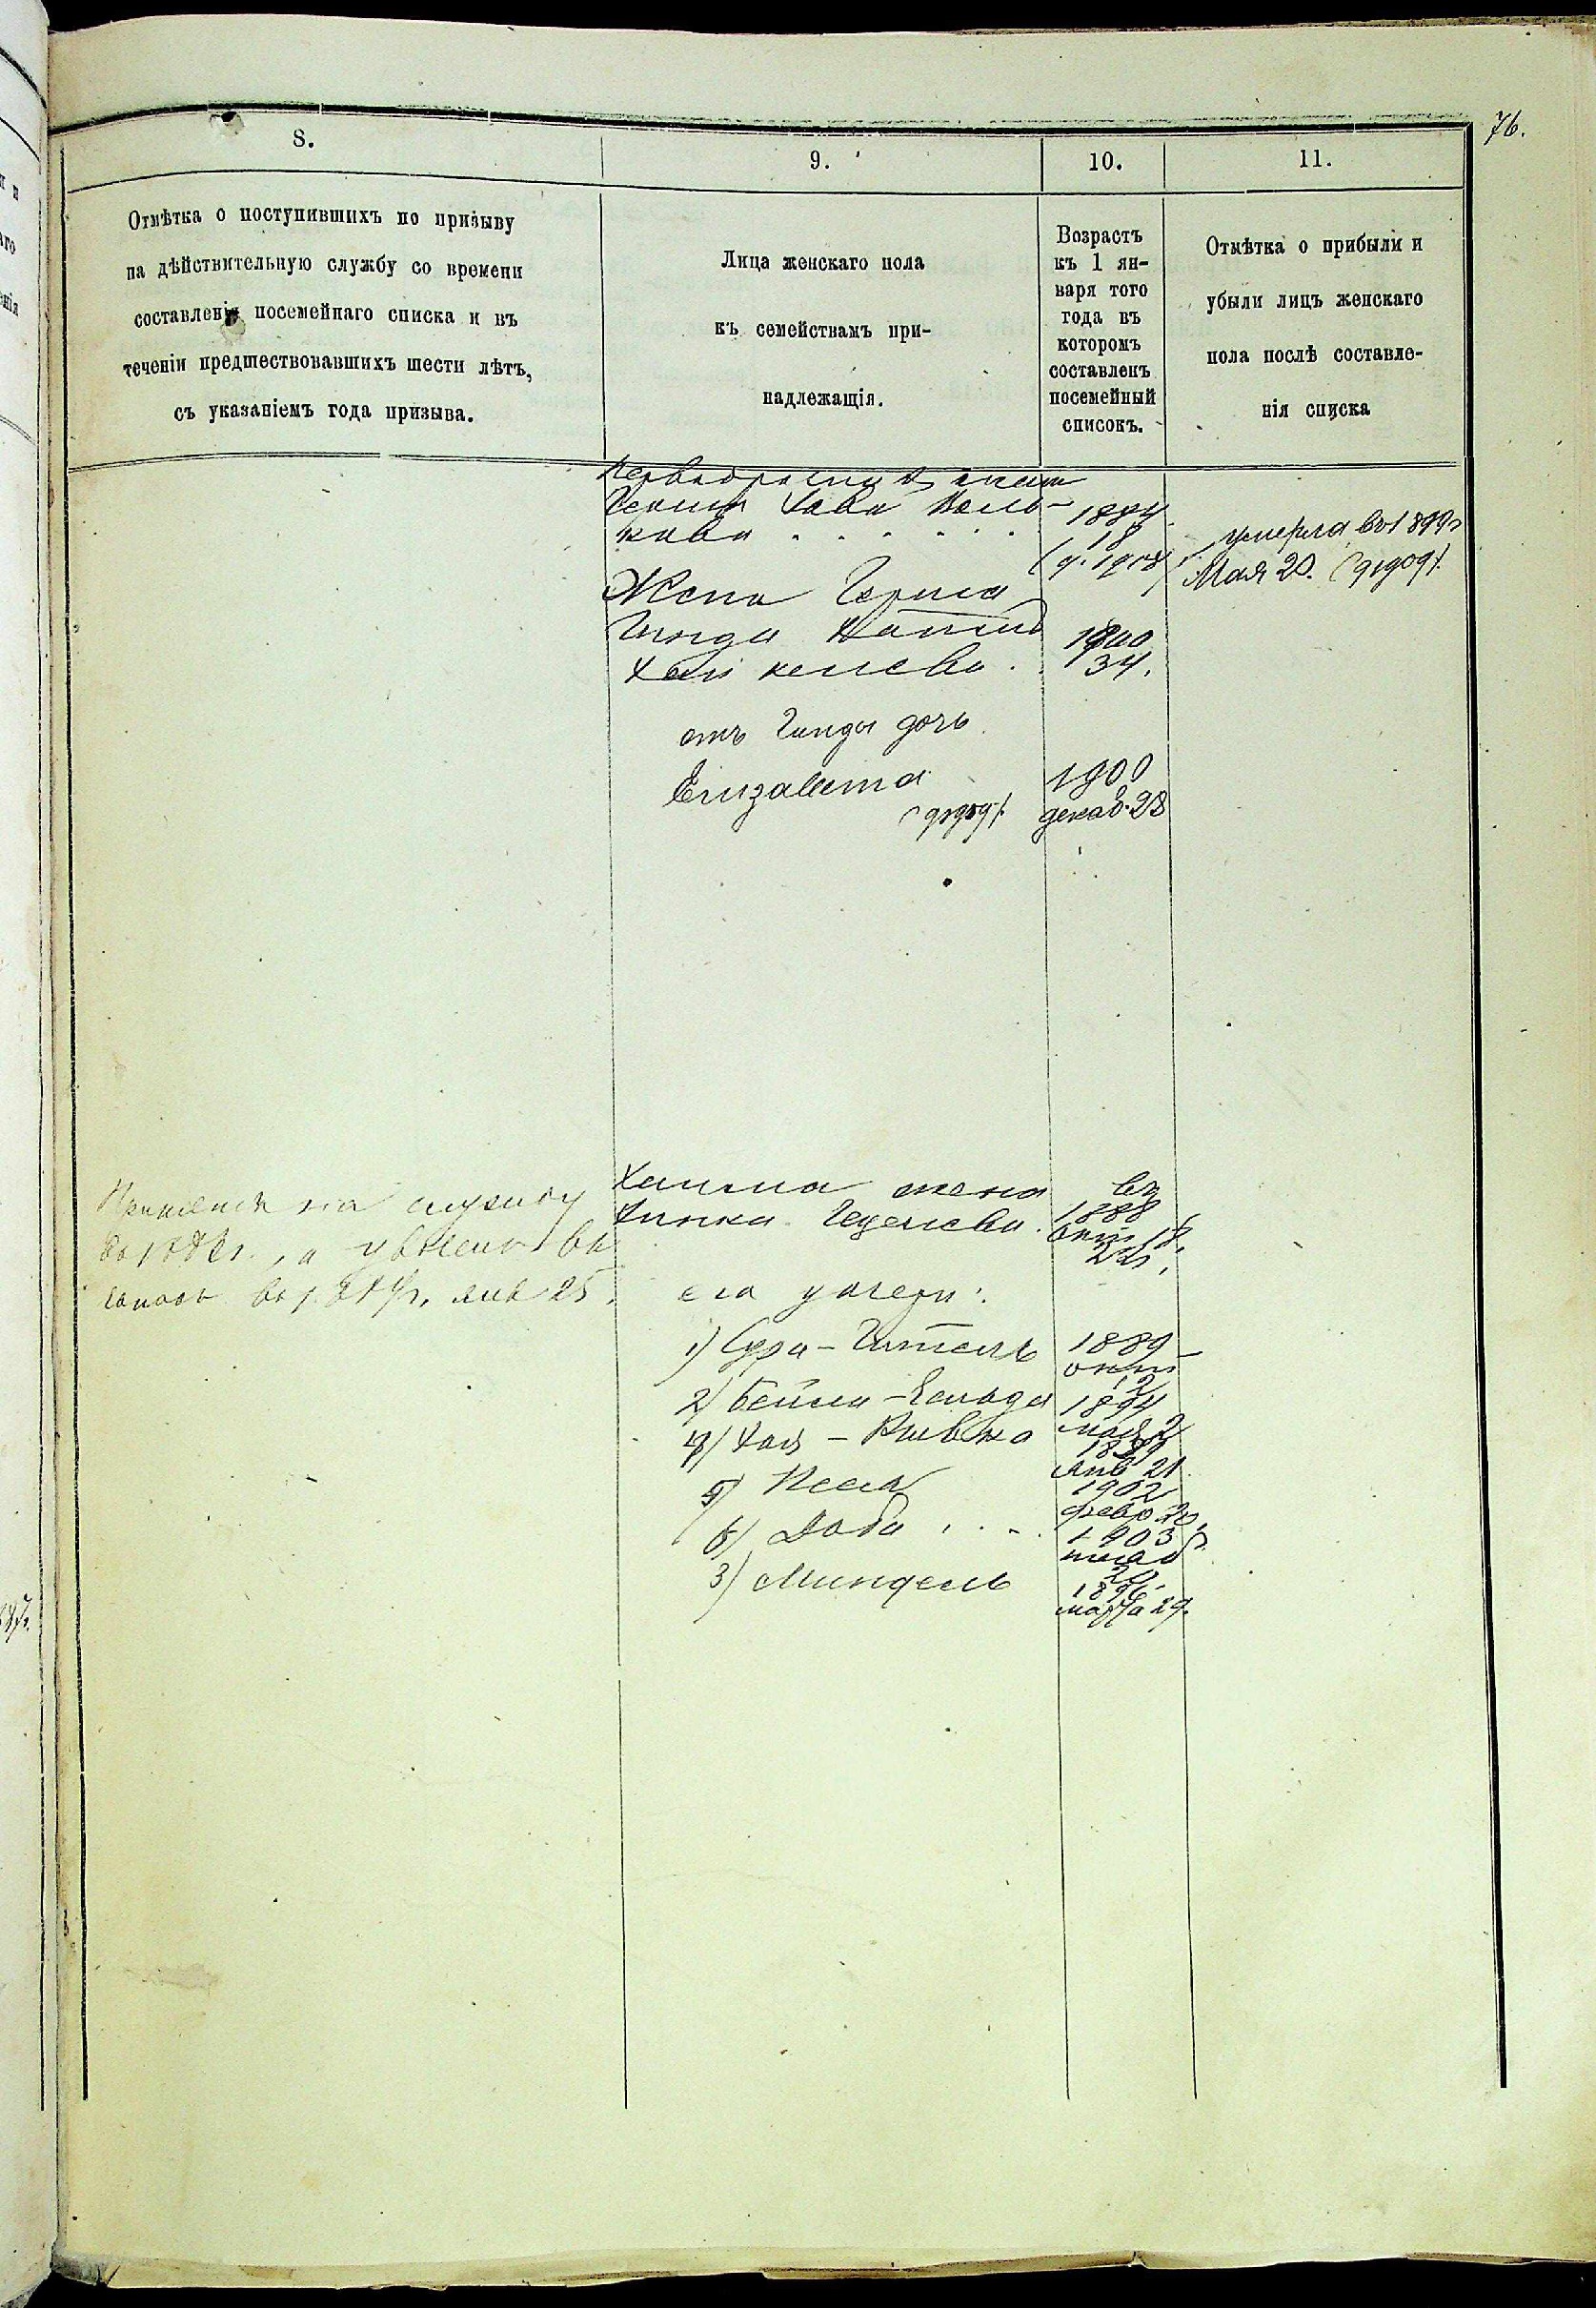 76.
8.
9.
10.
11.
Отмѣтка о поступившихъ по призыву
на дѣйствительную службу со времени
составленія посемейнаго списка и въ
теченіи предшествовавшихъ шести лѣтъ,
съ указаніемъ года призыва.
Лица женскаго пола
къ семействамъ при-
надлежащія.
Возрастъ
къ 1 ян-
варя того
года въ
которомъ
составленъ
посемейный
списокъ.
Отмѣтка о прибыли и
убыли лицъ женскаго
пола послѣ составле-
нія списка
Хава Вель-
кова
1884
18
умерла въ 1899 г
Мая 20.
Жена Герша
Гинда
Хаи келева
1900
34.
отъ Гинды дочь
Елизавета
1900
декаб. 28
Принятъ на службу
а уволенъ въ
запасъ янв 25.
Хаима жена
Хинка Гецелева
въ
1888
окт 18.
22 г.
его дочери:
1) Сура-Гитель
1889
окт
12
2) Бейла-Гольда
1894
мая 2
4) Хая-Ривка
1899
янв 21
5) Песя
1902
февр 20
6) Доба
1903
20
3) Миндель
1896
марта 29.